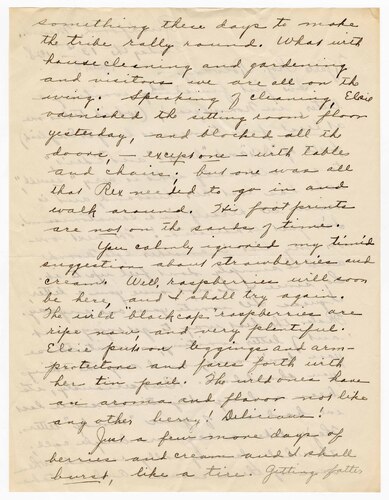 something these days to make
the tribe rally round. What with
housecleaning and gardening
and visitors we are all on the
wing. Speaking of cleaning, Elsie
varnished the sitting room floor
yesterday, and blocked all the
doors, - except one - with tables
and chairs; but one was all
that Rex needed to go in and
walk around. His footprints
are not on the sands of time.
You calmly ignored my timid
suggestion about strawberries and
cream. Well, raspberries will soon
be here, and I shall try again.
The wild blackcap raspberries are
ripe now, and very plentiful.
Elsie puts on leggings and arm-
protectors and fares forth with
her tin pail. The wild ones have
an aroma and flavor not like
any other berry! Delicious!
Just a few more days of
berries and cream and I shall
burst, like a tire. Getting fatter